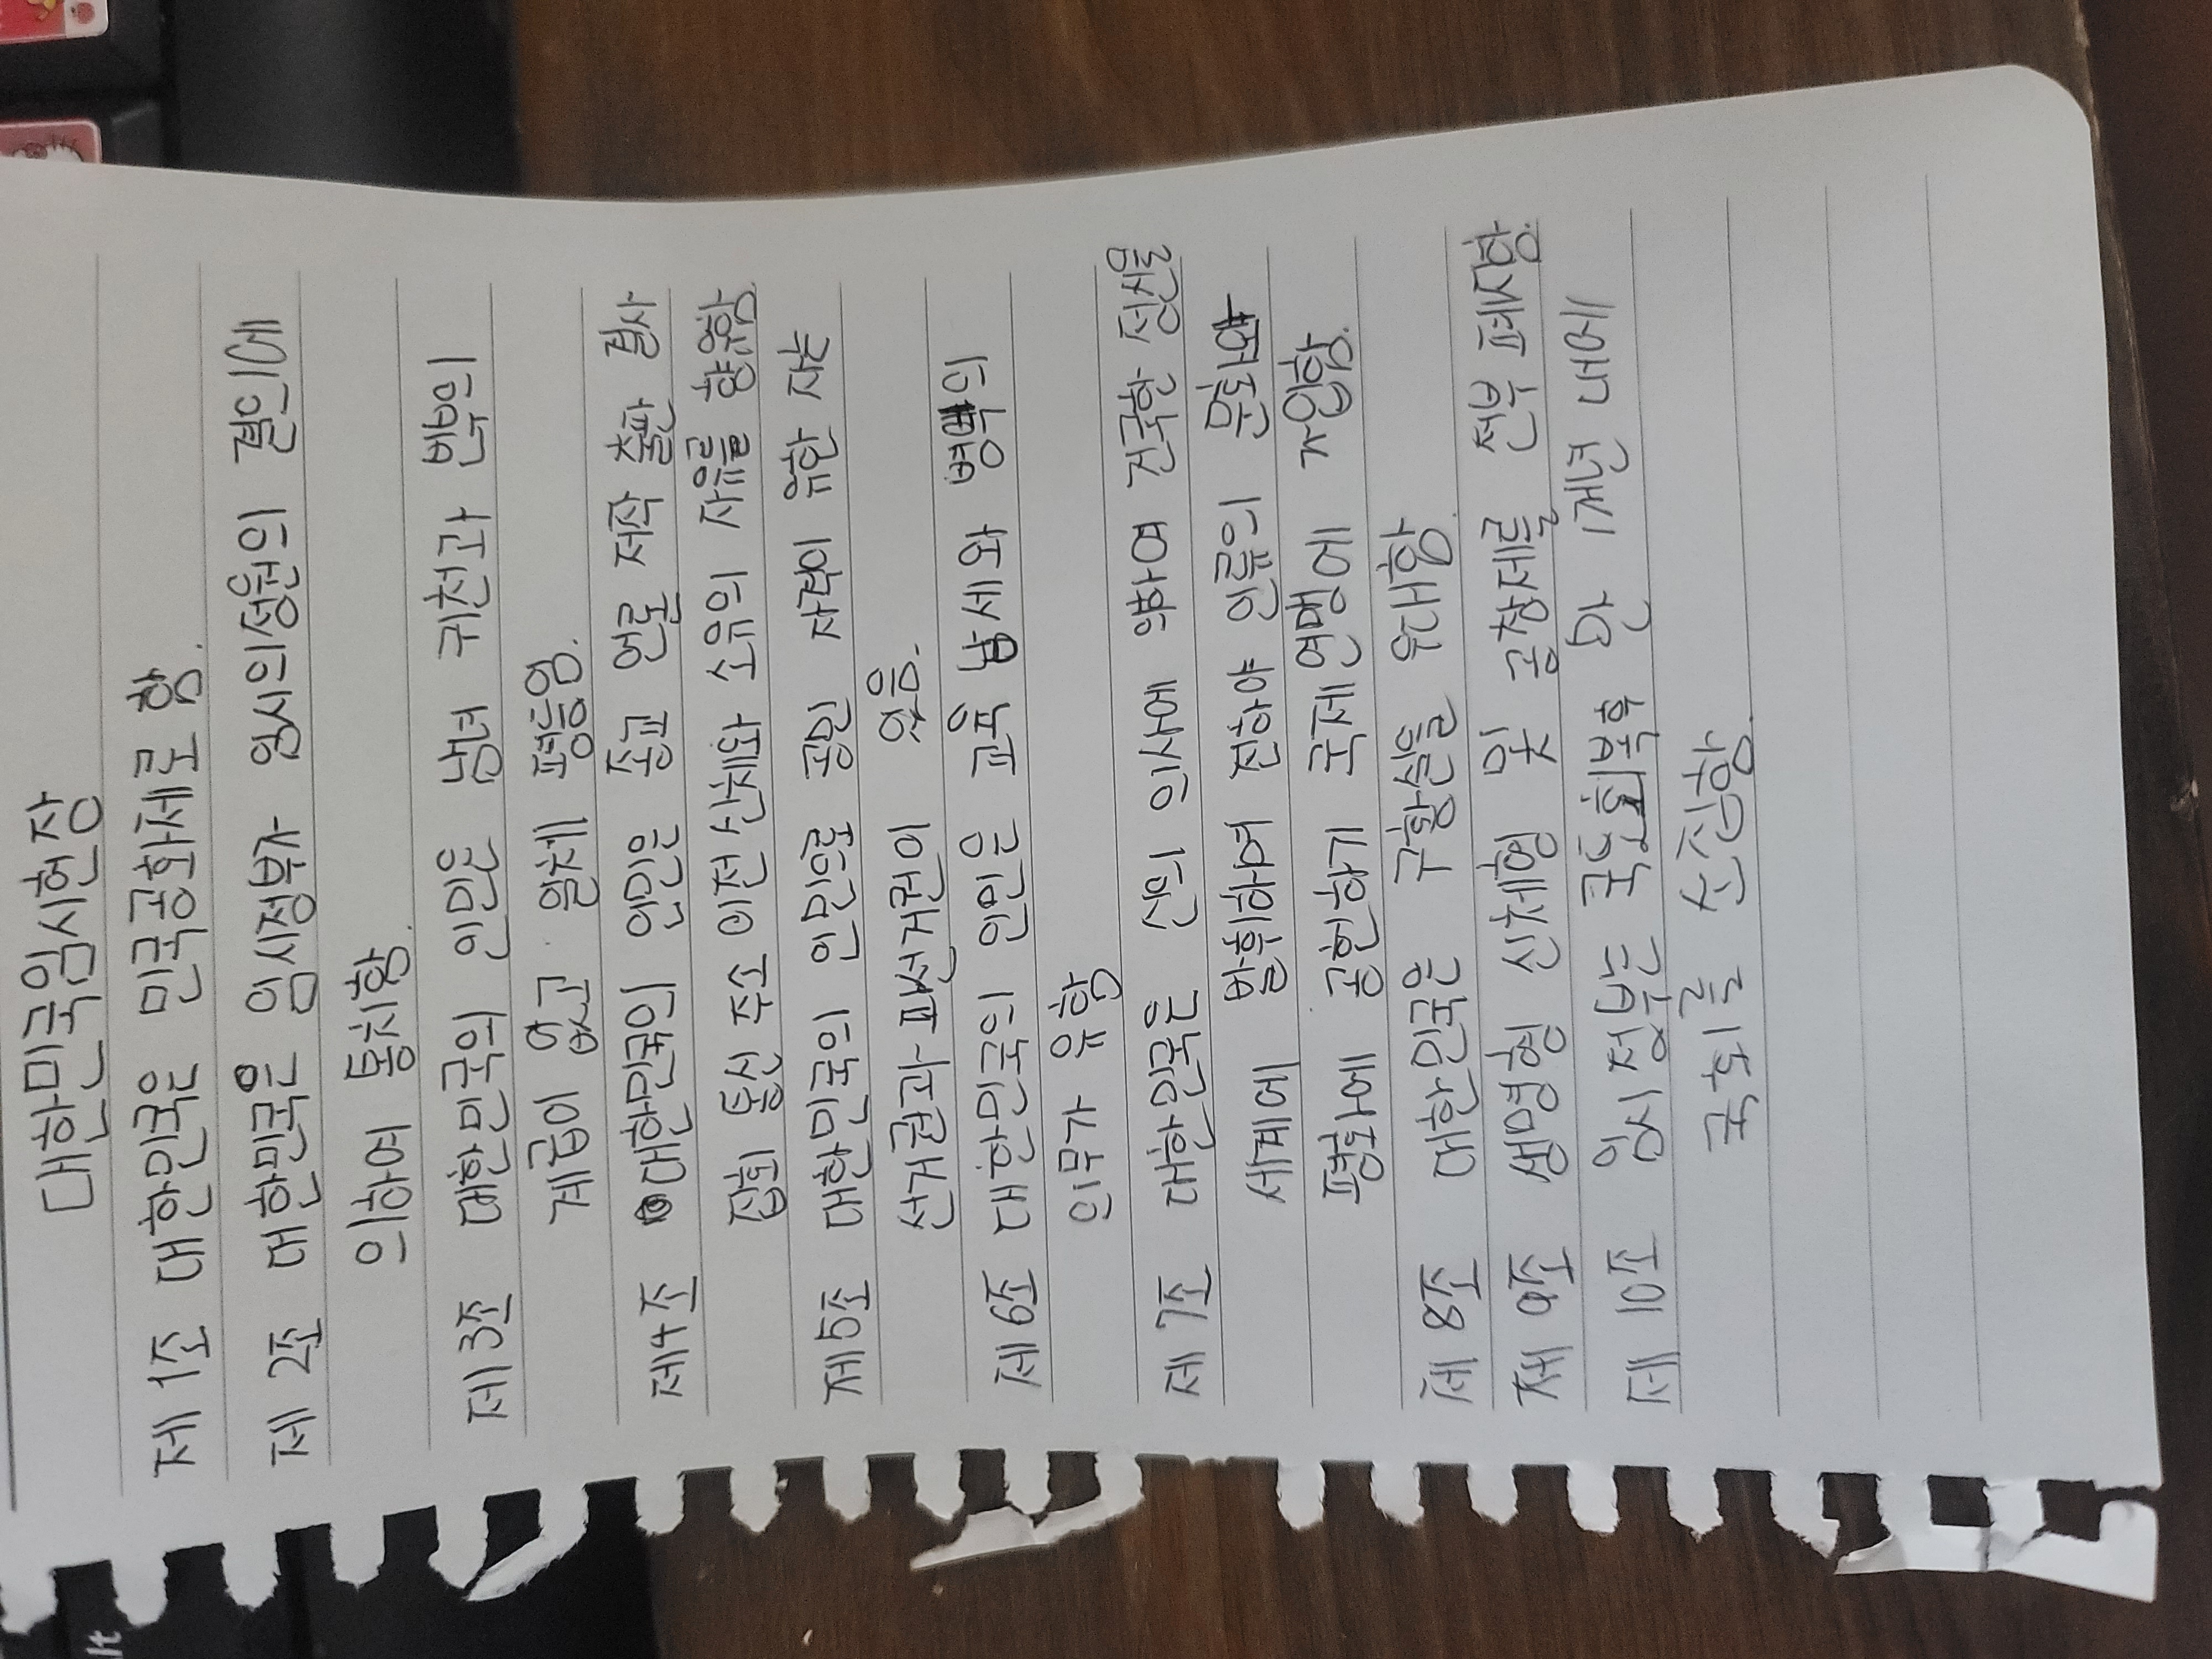 대한민국임시헌장
제 1조 대한민국은 민국공화제로 함.
제 2조 대한민국은 임시정부가 임시의정원의 결의에
인하여 통치함.
제 3조 대한민국의 인민은 남녀 귀천과 빈부의
계급이 없고 일체 평등임.
제4조 대한민국의 인민은 종교 언론 저작 출판 결사
집회 통신 주소 이전 신체와 소유의 자유를 향유함.
제5조 대한민국의 인민으로 공민 자격이 유한 자는
선거권과 피선거권이 있음.
제 6조 대한민국의 인민은 교육 납세와 병역의
의무가 유함
제 7조 대한민국은 신의 의사에 의하여 건국한 정신을
세계에 발휘하며 진하야 인류의 문화와
평화에 공헌하기 국제연맹에 가입함.
제 8조 대한민국은 구황실을 우대함.
제 9조 생명형 신체형 및 공창제를 전부 폐지함.
제 10조 임시정부는 국토회복후 만 1개년 내에
국회를 소집함.
lt